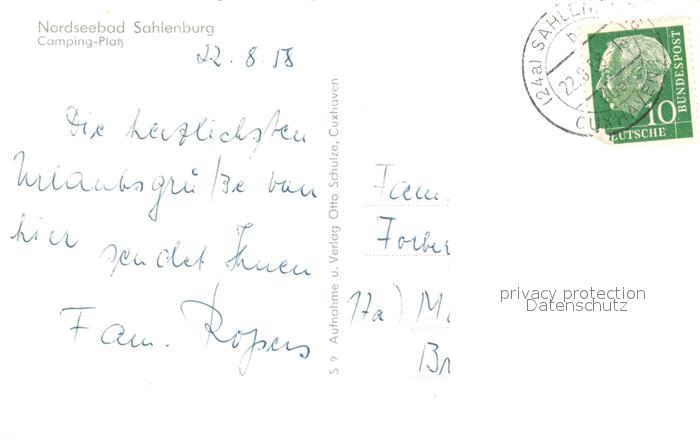 Nordseebad Sahlenburg
Camping-Platz
22.8.58
Die herzlichsten
Urlaubsgrüße von
hier sendet Ihnen
Fam. Ropers
S 9 Aufnahme u. Verlag Otto Schulze, Cuxhaven
Fam.
17a)
(24a) SAHLEN
22.8.58
CUXHAVEN
10
DEUTSCHE BUNDESPOST
privacy protection
Datenschutz